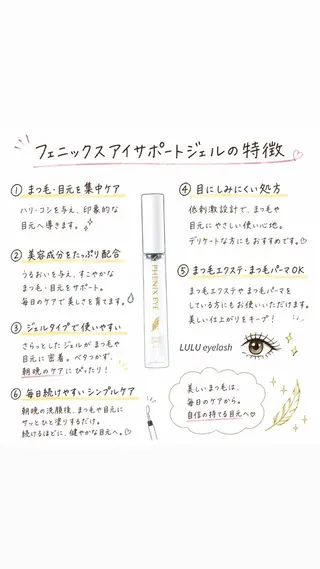 フェニックスアイサポートジェルの特徴
① まつ毛・目元を集中ケア
ハリ・コシを与え、印象的な
目元へ導きます。
② 美容成分をたっぷり配合
うるおいを与え、すこやかな
まつ毛・目元をサポート。
毎日のケアで美しさを育てます。
③ ジェルタイプで使いやすい
さらっとしたジェルがまつ毛や
目元に密着。ベタつかず、
朝晩のケアにぴったり！
⑥ 毎日続けやすいシンプルケア
朝晩の洗顔後、まつ毛や目元に
サッとひと塗りするだけ。
続けるほどに、健やかな目元へ。♡
PHENIX EYE
④ 目にしみにくい処方
低刺激設計で、まつ毛や
目元にやさしい使い心地。
デリケートな方にもおすすめです。♡
⑤ まつ毛エクステ・まつ毛パーマOK
まつ毛エクステやまつ毛パーマを
している方にもお使いいただけます。
美しい仕上がりをキープ！
LULU eyelash
美しいまつ毛は、
毎日のケアから。
自信の持てる目元へ♡